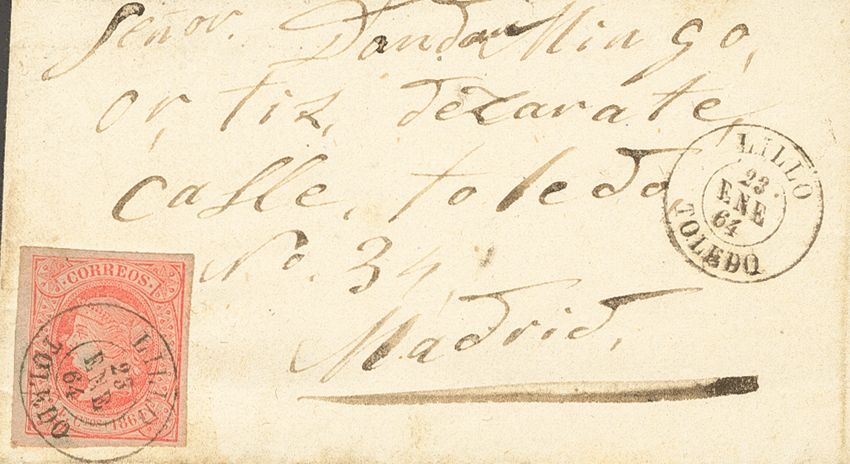 Señor. Don don Min go,
or, tiz, dezarate,
calle, toledo
No. 34,
Madrid,
LILLO
23
ENE
64
TOLEDO
CORREOS.
LILLO
23
ENE
64
TOLEDO
4 CUOS. 1864